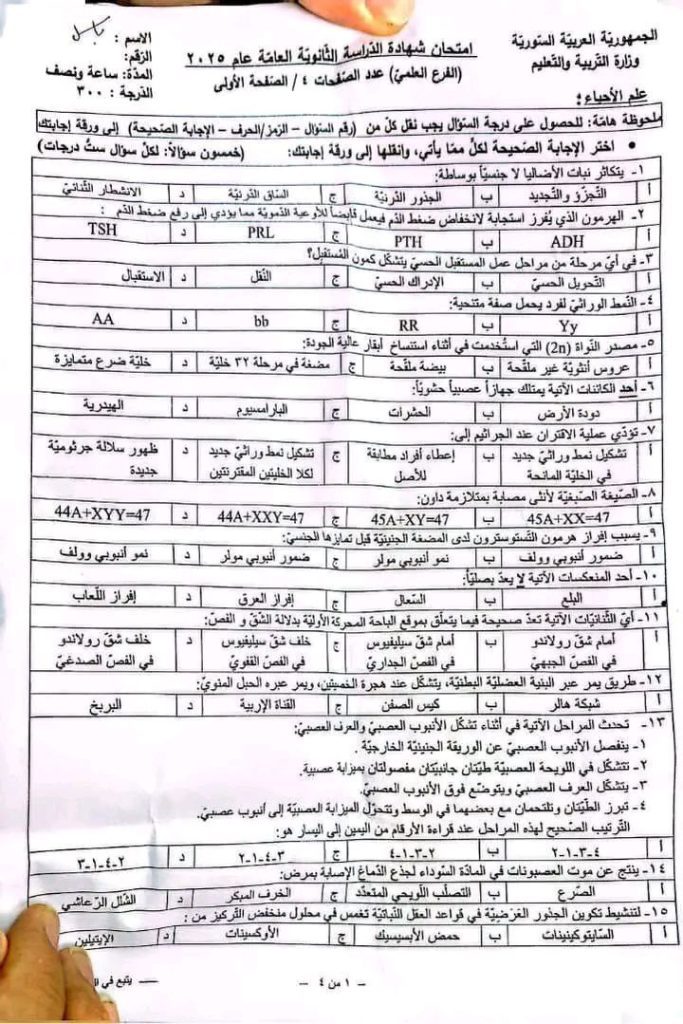 الجمهوريّة العربيّة السّوريّة
وزارة التّربية والتّعليم
امتحان شهادة الدّراسة الثّانويّة العامّة عام ٢٠٢٥
(الفرع العلميّ) عدد الصّفحات ٤ / الصّفحة الأولى
الاسم :
الرّقم:
المدّة: ساعة ونصف
الدّرجة : ٣٠٠
علم الأحياء :
ملحوظة هامّة: للحصول على درجة السّؤال يجب نقل كلّ من (رقم السّؤال – الرّمز/الحرف – الإجابة الصّحيحة) إلى ورقة إجابتك
• اختر الإجابة الصّحيحة لكلّ ممّا يأتي، وانقلها إلى ورقة إجابتك: (خمسون سؤالاً: لكلّ سؤال ستّ درجات)
١- يتكاثر نبات الأضاليا لا جنسيّاً بوساطة:
أ التّجزّؤ والتّجديد ب الجذور الدّرنيّة ج السّاق الدّرنيّة د الانشطار الثّنائيّ
٢- الهرمون الذي يُفرز استجابة لانخفاض ضغط الدّم فيعمل قابضاً للأوعية الدّمويّة مما يؤدي إلى رفع ضغط الدّم :
أ ADH ب PTH ج PRL د TSH
٣- في أيّ مرحلة من مراحل عمل المستقبل الحسيّ يتشكّل كمون المُستقبل؟
أ التّحويل الحسيّ ب الإدراك الحسيّ ج النّقل د الاستقبال
٤- النّمط الوراثيّ لفرد يحمل صفة متنحية:
أ Yy ب RR ج bb د AA
٥- مصدر النّواة (2n) التي استُخدمت في أثناء استنساخ أبقار عالية الجودة:
أ عروس أنثويّة غير ملقّحة ب بيضة ملقّحة ج مضغة في مرحلة ٣٢ خليّة د خليّة ضرع متمايزة
٦- أحد الكائنات الآتية يمتلك جهازاً عصبياً حشويّاً:
أ دودة الأرض ب الحشرات ج البارامسيوم د الهيدرية
٧- تؤدّي عملية الاقتران عند الجراثيم إلى:
أ تشكيل نمط وراثيّ جديد ب إعطاء أفراد مطابقة ج تشكيل نمط وراثيّ جديد د ظهور سلالة جرثوميّة
في الخليّة المانحة للأصل لكلا الخليتين المقترنتين جديدة
٨- الصّيغة الصّبغيّة لأنثى مصابة بمتلازمة داون:
أ 45A+XX=47 ب 45A+XY=47 ج 44A+XXY=47 د 44A+XYY=47
٩- يسبب إفراز هرمون التّستوسترون لدى المضغة الجنينيّة قبل تمايزها الجنسيّ:
أ ضمور أنبوبي وولف ب نمو أنبوبي مولر ج ضمور أنبوبي مولر د نمو أنبوبي وولف
١٠- أحد المنعكسات الآتية لا يعدّ بصليّاً:
أ البلع ب السّعال ج إفراز العرق د إفراز اللّعاب
١١- أيّ الثّنائيّات الآتية تعدّ صحيحة فيما يتعلّق بموقع الباحة المحركة الأوّليّة بدلالة الشّقّ و الفصّ:
أ أمام شقّ رولاندو ب أمام شقّ سيلفيوس ج خلف شقّ سيلفيوس د خلف شقّ رولاندو
في الفصّ الجبهيّ في الفصّ الجداريّ في الفصّ القفويّ في الفصّ الصدغيّ
١٢- طريق يمر عبر البنية العضليّة البطنيّة، يتشكّل عند هجرة الخصيتين، ويمر عبره الحبل المنويّ:
أ شبكة هالر ب كيس الصفن ج القناة الإربية د البربخ
١٣- تحدث المراحل الآتية في أثناء تشكّل الأنبوب العصبيّ والعرف العصبيّ:
١- ينفصل الأنبوب العصبيّ عن الوريقة الجنينيّة الخارجيّة .
٢- تتشكّل في اللويحة العصبيّة طيّتان جانبيّتان مفصولتان بميزابة عصبية.
٣- يتشكّل العرف العصبيّ ويتوضع فوق الأنبوب العصبيّ.
٤- تبرز الطّيّتان وتلتحمان مع بعضهما في الوسط وتتحوّل الميزابة العصبيّة إلى أنبوب عصبيّ.
التّرتيب الصّحيح لهذه المراحل عند قراءة الأرقام من اليمين إلى اليسار هو:
أ ٤-٣-١-٢ ب ٢-٣-١-٤ ج ٣-٤-١-٢ د ٢-٤-١-٣
١٤- ينتج عن موت العصبونات في المادّة السّوداء لجذع الدّماغ الإصابة بمرض:
أ الصّرع ب التصلّب اللّويحي المتعدّد ج الخرف المبكر د الشّلل الرّعاشي
١٥- لتنشيط تكوين الجذور العَرَضيّة في قواعد العقل النّباتيّة تغمس في محلول منخفض التّركيز من :
أ السّايتوكينينات ب حمض الأبسيسيك ج الأوكسينات د الإيتيلين
-- ١ من ٤ --
يتبع في